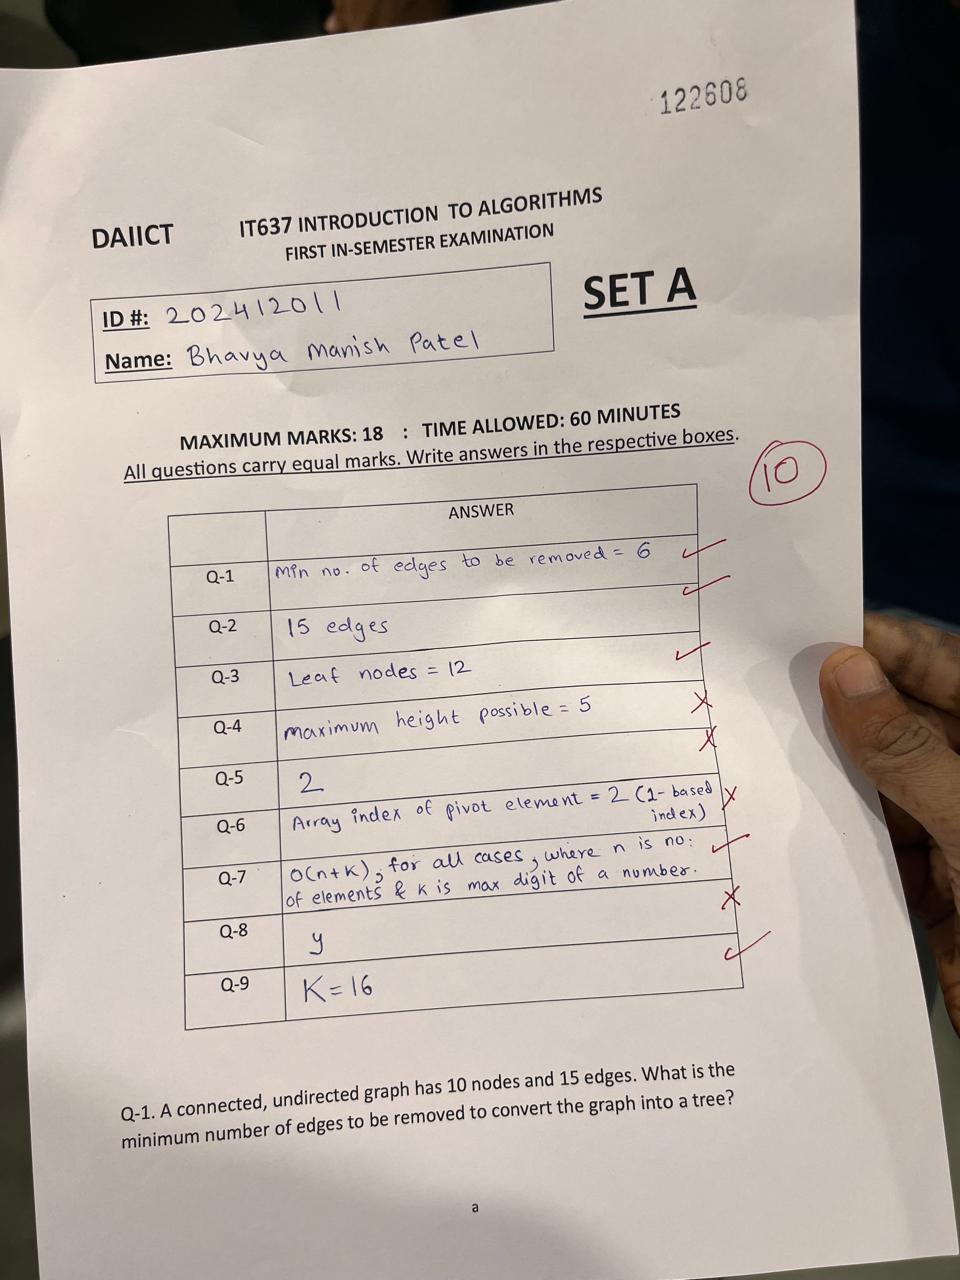 122608
DAIICT IT637 INTRODUCTION TO ALGORITHMS
FIRST IN-SEMESTER EXAMINATION
SET A
ID #: 202412011
Name: Bhavya Manish Patel
MAXIMUM MARKS: 18 : TIME ALLOWED: 60 MINUTES
All questions carry equal marks. Write answers in the respective boxes.
10
ANSWER
Q-1 Min no. of edges to be removed = 6
Q-2 15 edges
Q-3 Leaf nodes = 12
Q-4 maximum height possible = 5
Q-5 2
Q-6 Array index of pivot element = 2 (1-based
index)
Q-7 O(n+k), for all cases, where n is no:
of elements & k is max digit of a number.
Q-8 y
Q-9 K = 16
Q-1. A connected, undirected graph has 10 nodes and 15 edges. What is the
minimum number of edges to be removed to convert the graph into a tree?
a